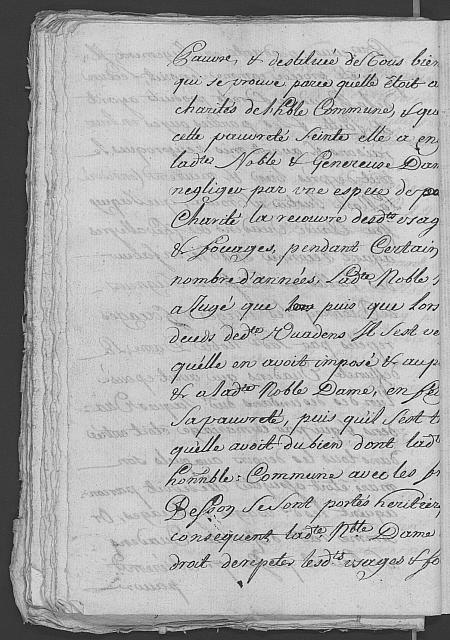 Pauvre, & destituée de tous bien
qui se trouve parce qu'elle étoit a
charités de l'hble Commune, & que
cette pauvreté feinte elle a en
ladte Noble & Genereuse Dam
negliger par une espece de
Charité la recouvre desdts usag
& focages, pendant Certain
nombre d'années, Ladte Noble
a Jugé que puis que lors
deceds dedte Vuadens Il s'est ve
qu'elle en avoit imposé & au p
& a ladte Noble Dame, en fei
Sa pauvreté, puis qu'il s'est t
qu'elle avoit du bien dont lad
honnble: Commune avec les fr
Besson se sont portés heritie
consequent, ladte Nble Dame
droit de repeter lesdts usages & fo